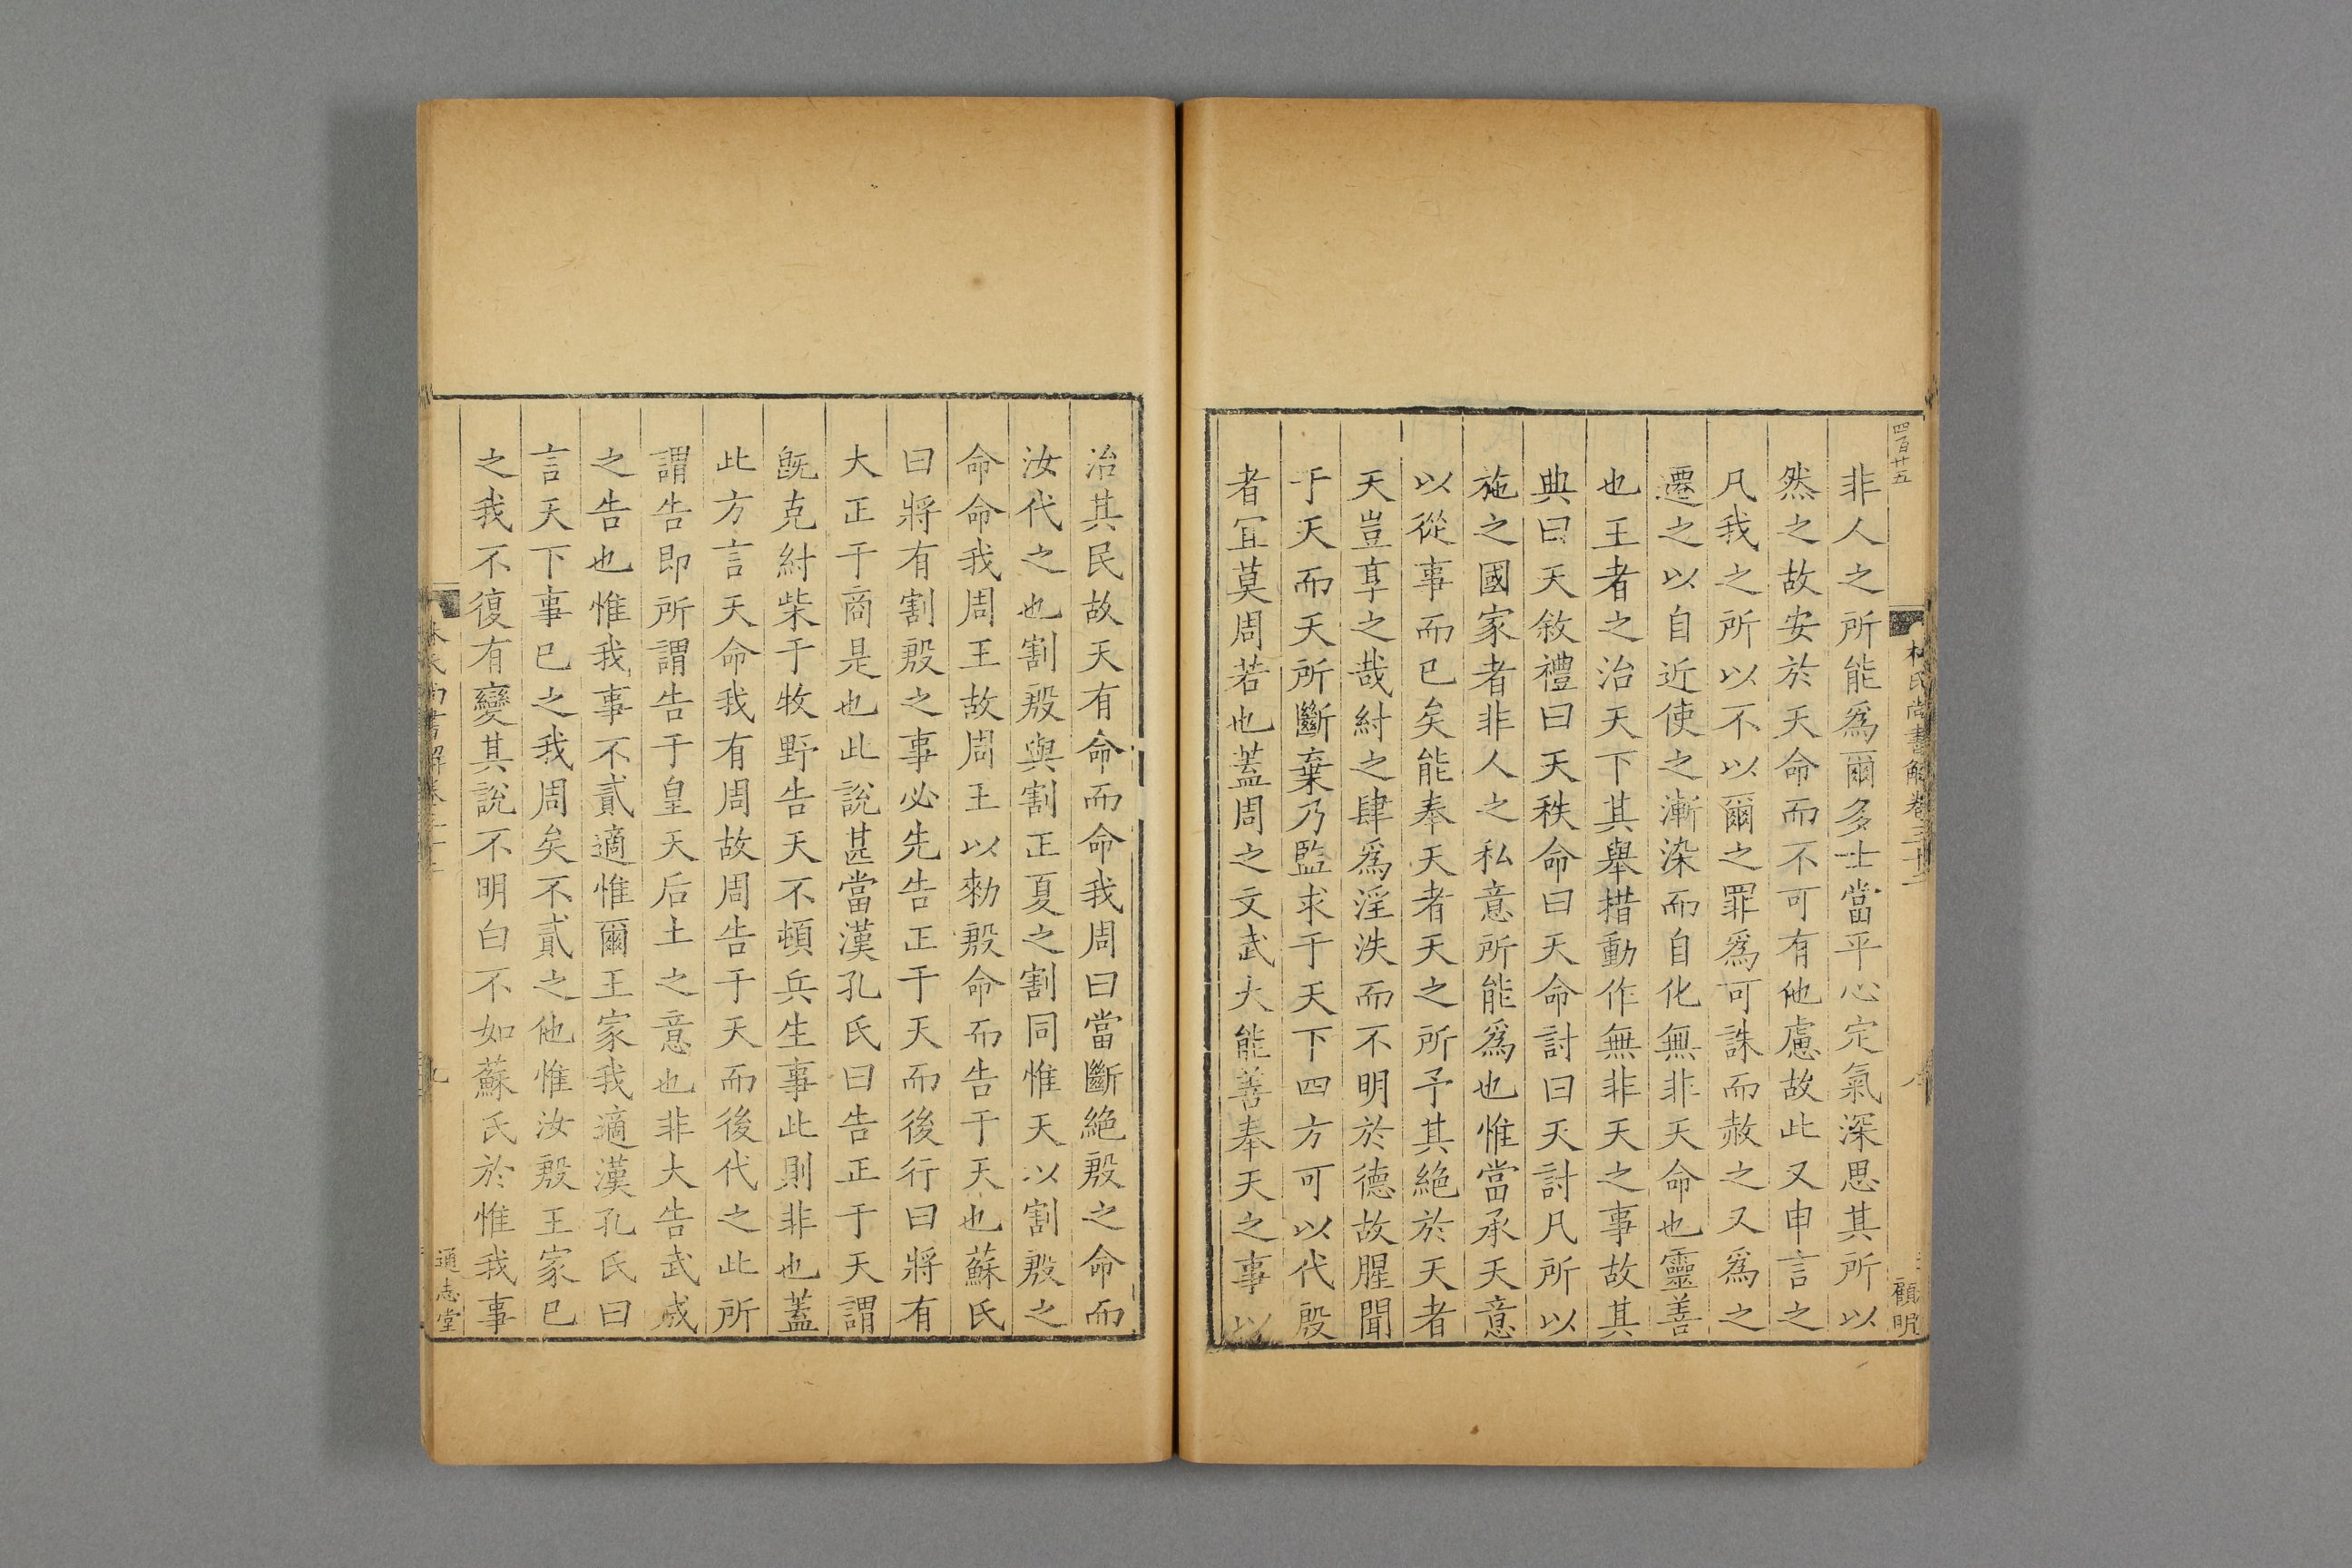 四百廿五
林氏尚書解卷三十二
顧明
非人之所能爲爾多士當平心定氣深思其所以
然之故安於天命而不可有他慮故此又申言之
凡我之所以不以爾之罪爲可誅而赦之又爲之
遷之以自近使之漸染而自化無非天命也靈善
也王者之治天下其舉措動作無非天之事故其
典曰天敘禮曰天秩命曰天命討曰天討凡所以
施之國家者非人之私意所能爲也惟當承天意
以從事而已矣能奉天者天之所予其絕於天者
天豈享之哉紂之肆爲淫泆而不明於德故腥聞
于天而天所斷棄乃監求于天下四方可以代殷
者宜莫周若也蓋周之文武大能善奉天之事以
治其民故天有命而命我周曰當斷絕殷之命而
汝代之也割殷與割正夏之割同惟天以割殷之
命命我周王故周王以勑殷命而告于天也蘇氏
曰將有割殷之事必先告正于天而後行曰將有
大正于商是也此說甚當漢孔氏曰告正于天謂
旣克紂柴于牧野告天不頓兵生事此則非也蓋
此方言天命我有周故周告于天而後代之此所
謂告即所謂告于皇天后土之意也非大告武成
之告也惟我事不貳適惟爾王家我適漢孔氏曰
言天下事已之我周矣不貳之他惟汝殷王家已
之我不復有變其說不明白不如蘇氏於惟我事
林氏尚書解卷三十二
九
通志堂